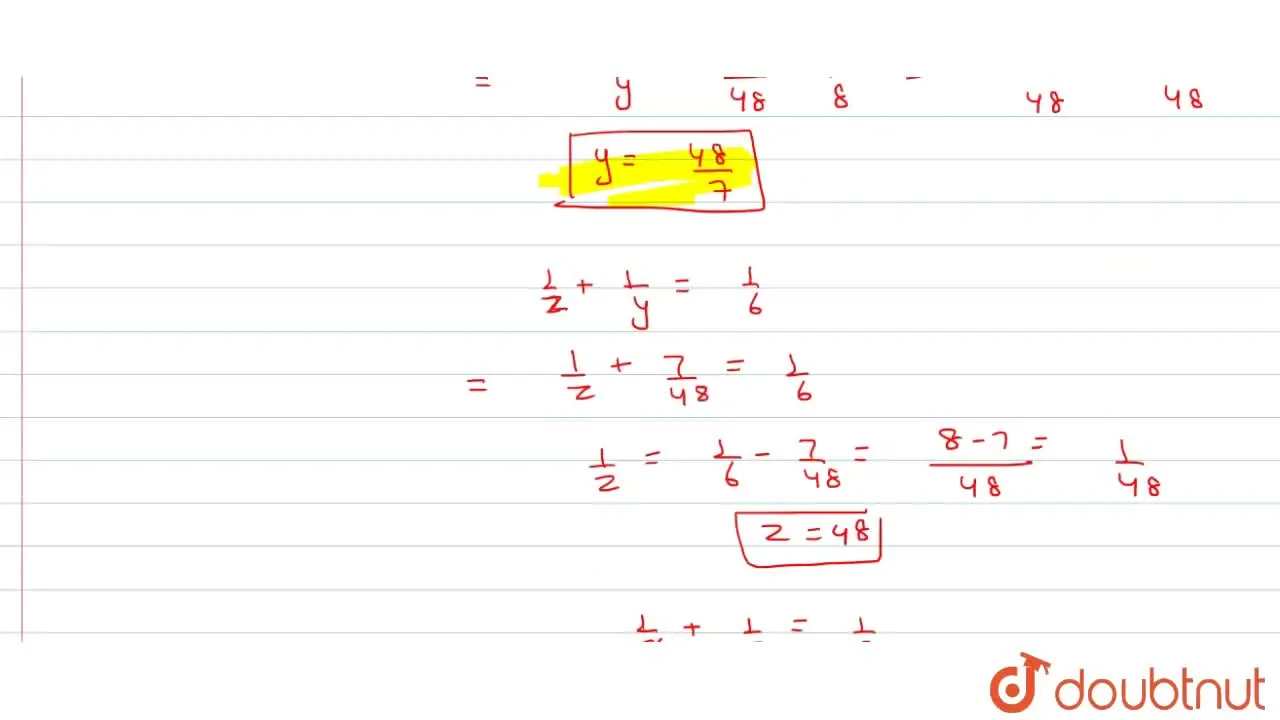 = y 48 8 = 48 48
y = 48/7
1/z + 1/y = 1/6
= 1/z + 7/48 = 1/6
1/z = 1/6 - 7/48 = 8-7/48 = 1/48
z = 48
1 + 1 = 1
doubtnut